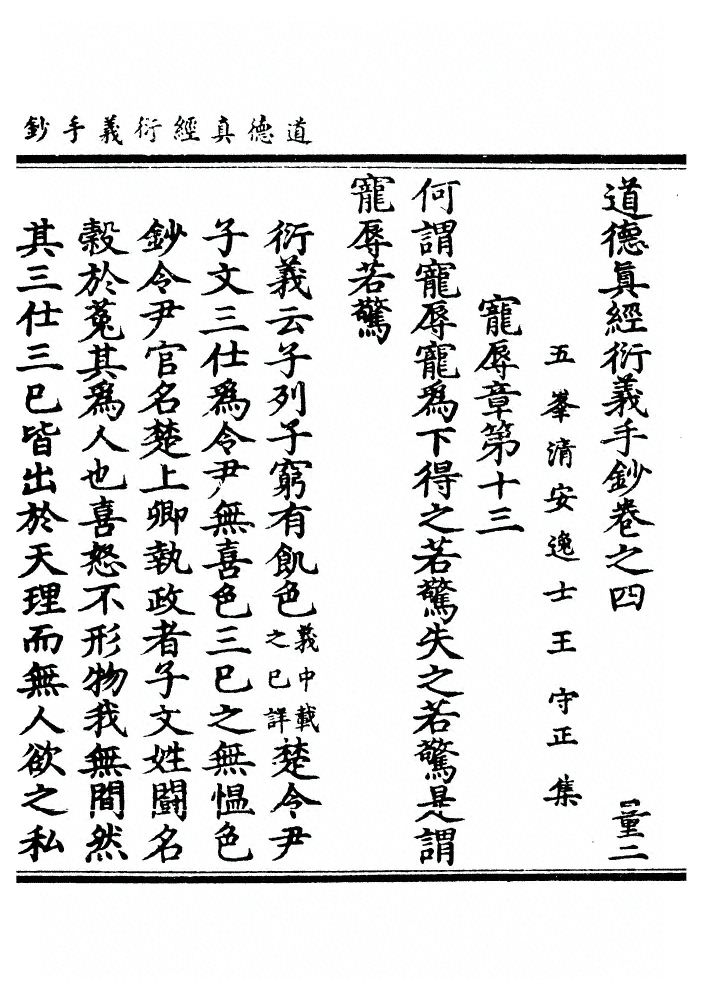 道德真經衍義手鈔
道德眞經衍義手鈔卷之四
量二
五峯清安逸士王守正集
寵辱章第十三
何謂寵辱寵爲下得之若驚失之若驚是謂
寵辱若驚
衍義云子列子窮有飢色義中載之已詳楚令尹
子文三仕爲令尹無喜色三已之無愠色
鈔令尹官名楚上卿執政者子文姓鬪名
穀於菟其爲人也喜怒不形物我無間然
其三仕三已皆出於天理而無人欲之私